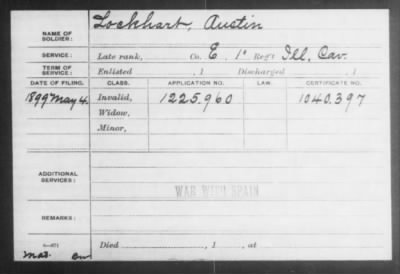 NAME OF SOLDIER: Lockhart, Austin
SERVICE: Late rank, Co. E, 1" Reg't Ill, Cav.
TERM OF SERVICE: Enlisted , 1 Discharged , 1
DATE OF FILING. CLASS. APPLICATION NO. LAW. CERTIFICATE NO.
1899 May 4. Invalid, 1225.960 1040.397
Widow,
Minor,
ADDITIONAL SERVICES:
WAR WITH SPAIN
REMARKS:
Died , 1 , at